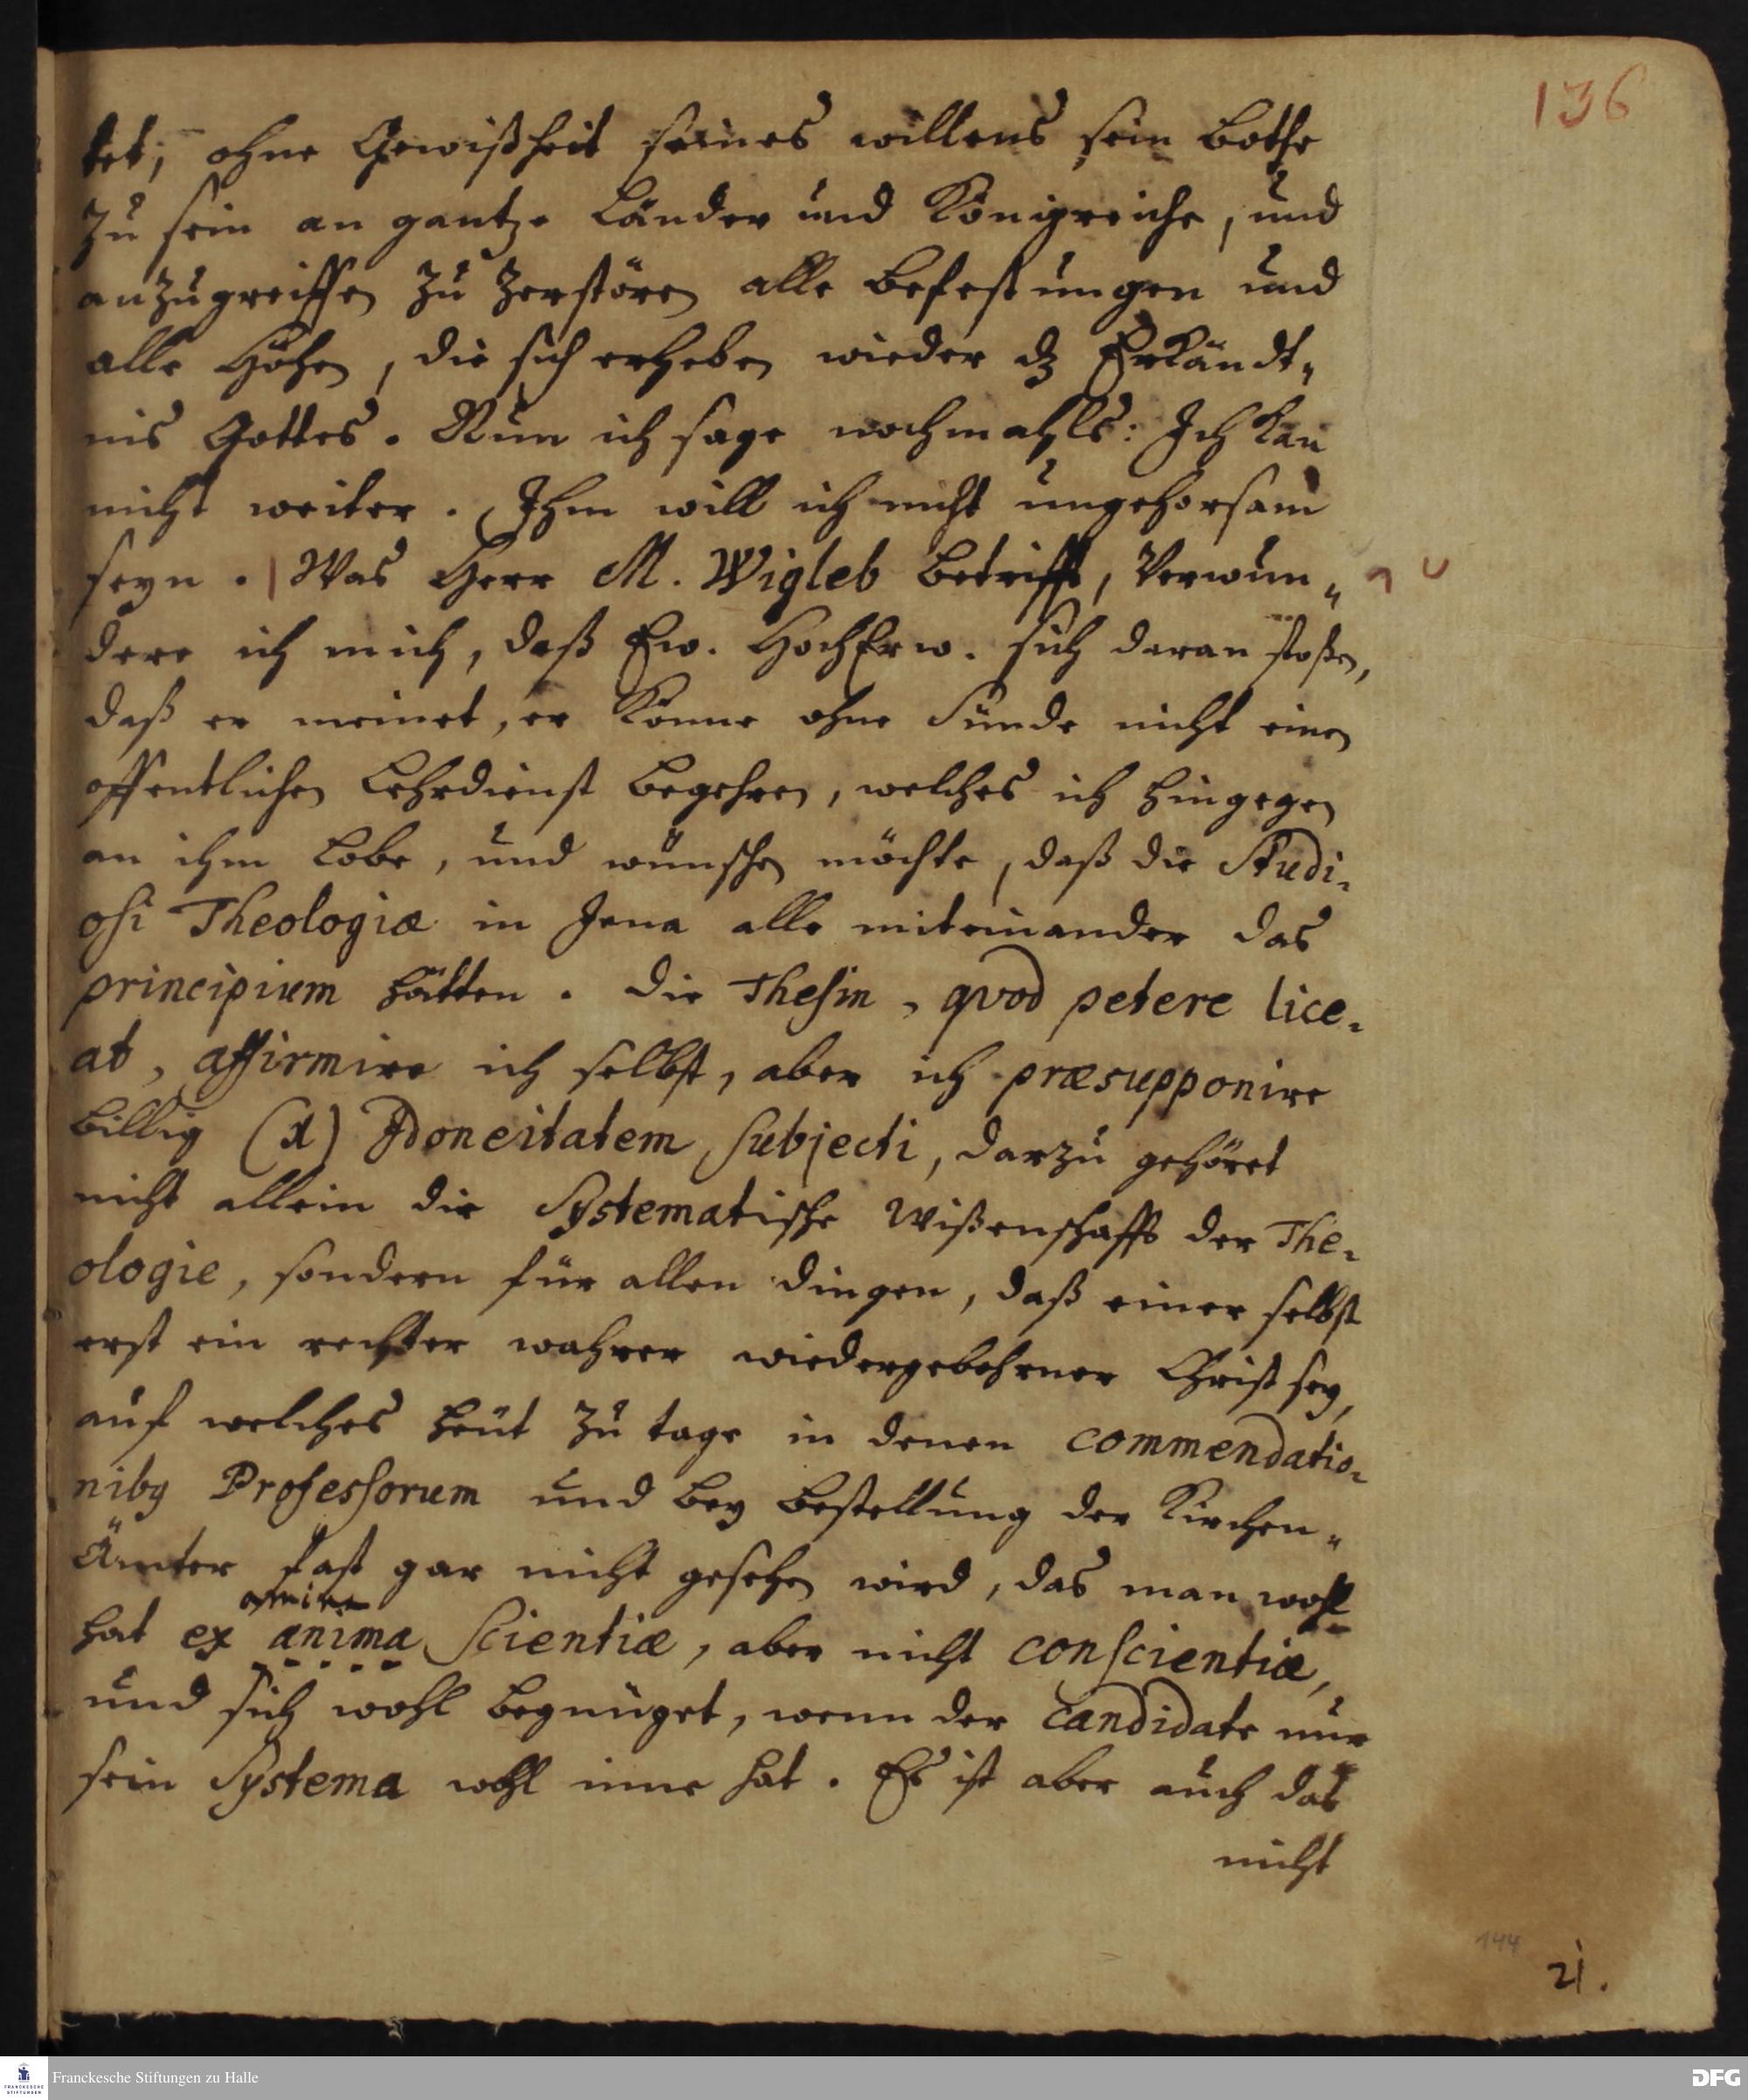 136
tet; ohne Gewißheit seines willens sein Bothe
zu sein an gantze Länder und Königreiche, und
anzugreiffen zu zerstören alle Befestungen und
alle Höhen, die sich erheben wieder dz Erkändt„
nis Gottes. Nun ich sage nochmahls: Ich kan
nicht weiter. Ihm will ich nicht ungehorsam
seyn. | Was Herr M. Wigleb betrifft, verwun„
dere ich mich, daß Ew. HochErw. sich daran stoßen,
daß er meinet, er könne ohne Sünde nicht einen
offentlichen Lehrdienst begehren, welches ich hingegen
an ihm lobe, und wünschen möchte, daß die Studi-
osi Theologiæ in Jena alle miteinander das
principium hätten. Die Thesin, qvod petere lice-
at, affirmire ich selbst, aber ich præsupponire
billig (α) Idoneitatem Subjecti, darzu gehöret
nicht allein die Systematische Wißenschafft der The-
ologie, sondern für allen dingen, daß einer selbst
erst ein rechter wahrer wiedergebohrner Christ sey,
auf welches heüt zu tage in denen commendatio-
niby Professorum und bey bestellung der Kirchen„
Ämter fast gar nicht gesehen wird, das man wohl
hat ex anima Scientiæ, aber nicht conscientiæ,
und sich wohl begnüget, wenn der Candidate nur
sein Systema wohl inne hat. Es ist aber auch das
nicht
144
21.
Franckesche Stiftungen zu Halle
FRANCKESCHE STIFTUNGEN
DFG